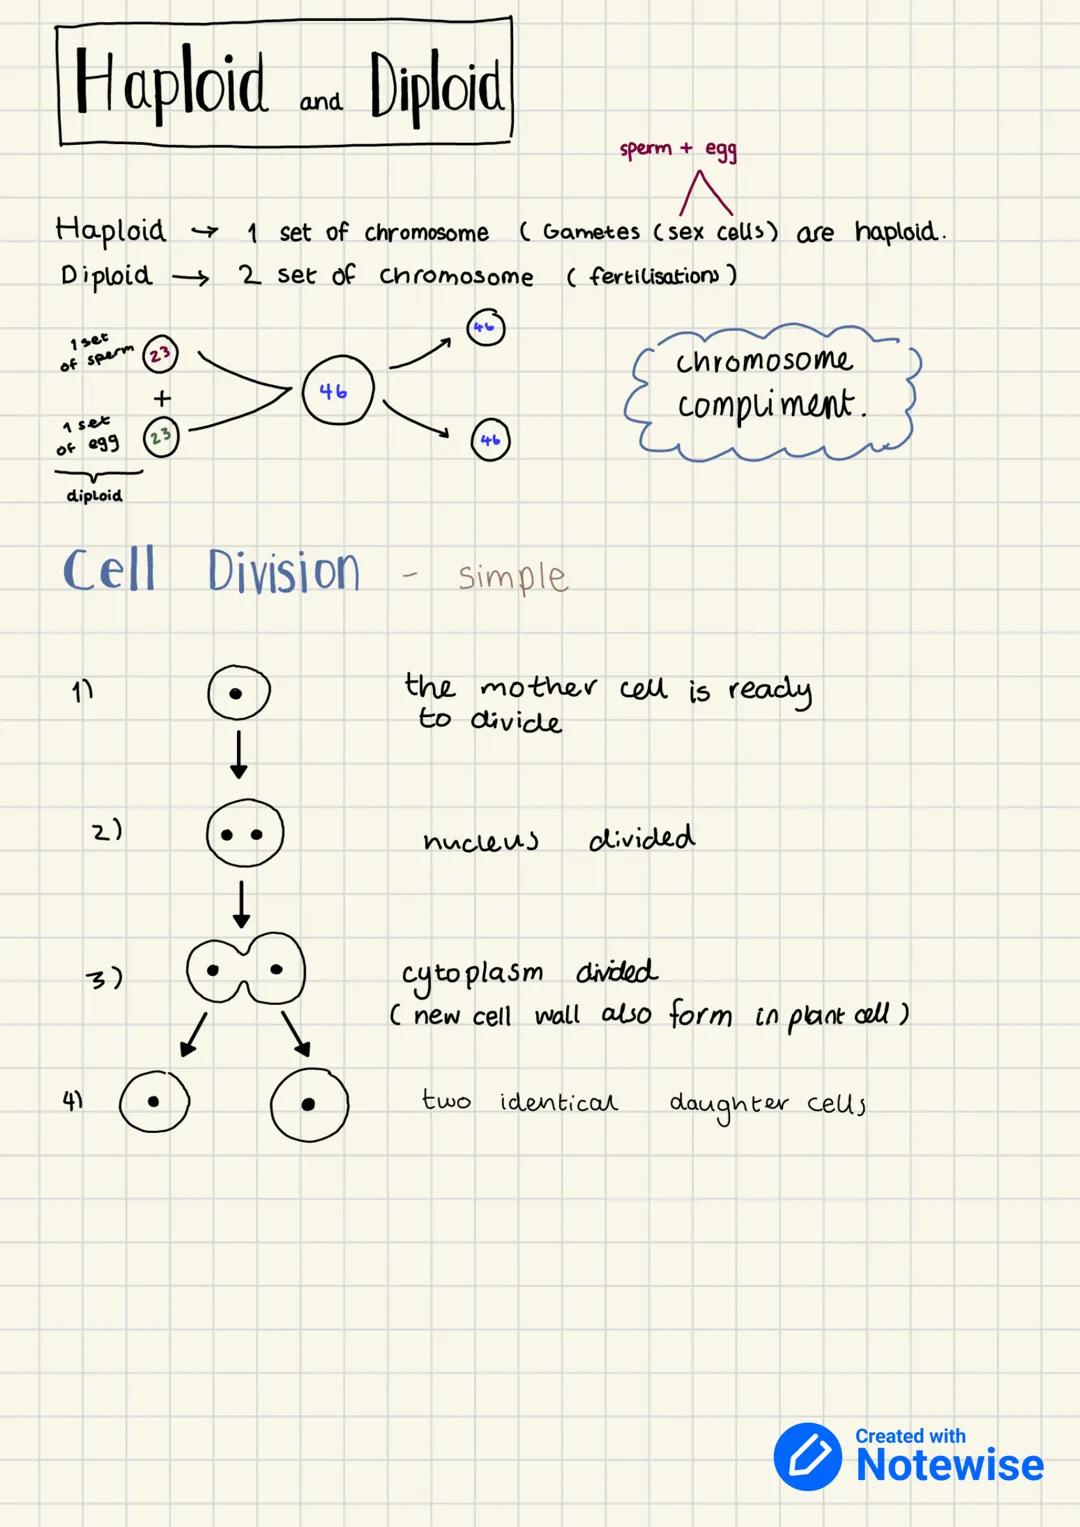 Haploid and Diploid
sperm + egg
Haploid → 1 set of chromosome ( Gametes (sex cells) are haploid.
Diploid → 2 set of chromosome ( fertilisations )
1 set
of sperm
23
+
1 set
of egg
23
diploid
46
46
46
chromosome
compliment.
Cell Division - simple
1) the mother cell is ready
to divide
2) nucleus divided
3) cytoplasm divided
( new cell wall also form in plant cell )
4) two identical daughter cells
Created with
Notewise